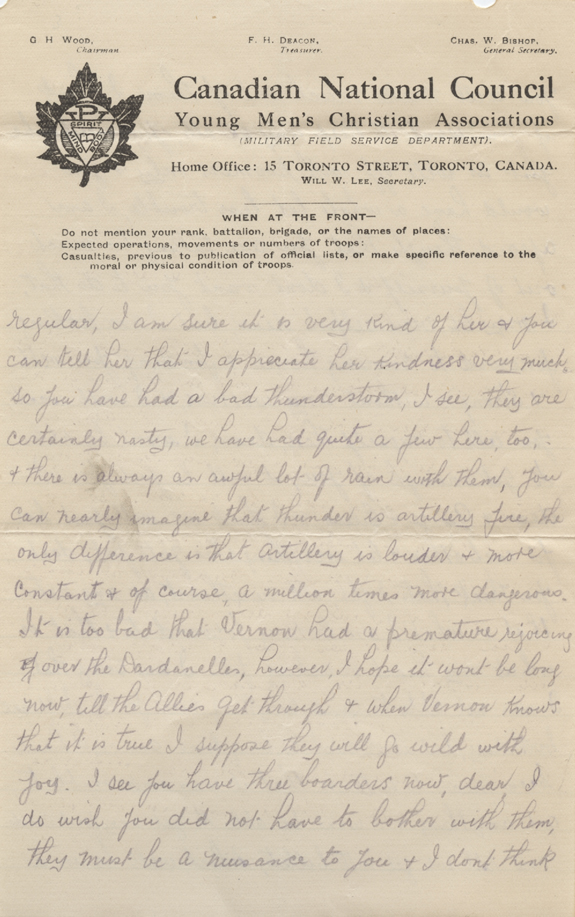 G H WOOD,
Chairman
F. H. DEACON,
Treasurer.
CHAS. W. BISHOP,
General Secretary.
SPIRIT
MIND
BODY
Canadian National Council
Young Men's Christian Associations
(MILITARY FIELD SERVICE DEPARTMENT).
Home Office: 15 TORONTO STREET, TORONTO, CANADA.
WILL W. LEE, Secretary.
WHEN AT THE FRONT—
Do not mention your rank, battalion, brigade, or the names of places:
Expected operations, movements or numbers of troops:
Casualties, previous to publication of official lists, or make specific reference to the
moral or physical condition of troops.
regular, I am sure it is very kind of her & you
can tell her that I appreciate her kindness very much.
so you have had a bad thunderstorm, I see, they are
certainly nasty, we have had quite a few here, too,
& there is always an awful lot of rain with them, you
can nearly imagine that thunder is artillery fire, the
only difference is that artillery is louder & more
constant & of course, a million times more dangerous.
It is too bad that Vernon had a premature rejoicing
over the Dardanelles, however, I hope it wont be long
now, till the Allies get through & when Vernon knows
that it is true I suppose they will go wild with
joy. I see you have three boarders now, dear, I
do wish you did not have to bother with them,
they must be a nuisance to you & I dont think